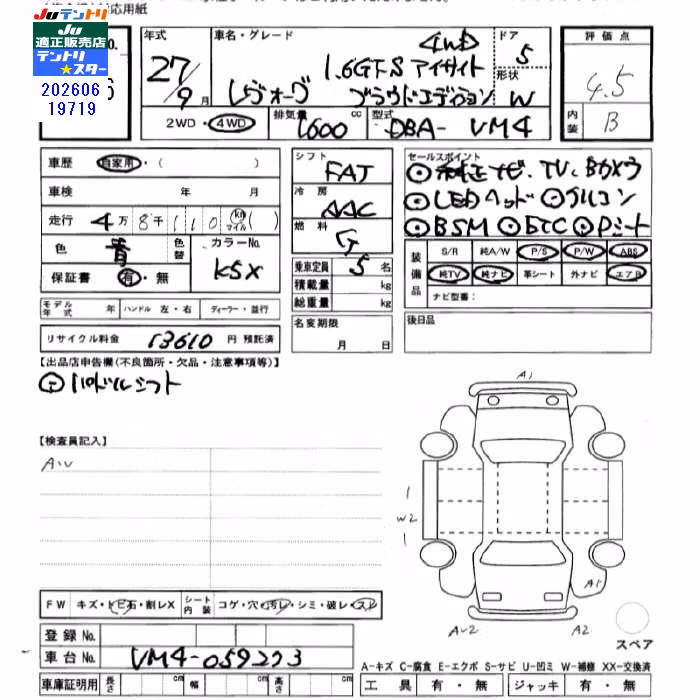 対応用紙
Juテントリ
Ju
適正販売店
テントリ
★スター
202606
19719
No.
年式 車名・グレード ドア 評価点
4WD 5
27/9月 レヴォーグ 1.6GT-S アイサイト 形状 4.5
プラウドエディション W
2WD・4WD 排気量 1600 cc 型式 DBA- VM4 内装 B
車歴 自家用・( )
車検 年 月
走行 4万8千110 km マイル ( )
色 青 色替 カラーNo. K5X
保証書 有・無
モデル年式 年 ハンドル 左・右 ディーラー・並行
リサイクル料金 13610 円 預託済
シフト FAT
冷房 AAC
燃料 G
乗車定員 5 名
積載量 kg
総重量 kg
名変期限
月 日
セールスポイント
⊙純正ナビ、TV、Bカメラ
⊙LEDヘッド ⊙クルコン
⊙BSM ⊙ETC ⊙Pシート
装備品 S/R 純A/W P/S P/W ABS
純TV 純ナビ 革シート 外ナビ エアB
ナビ型番:
後日品
【出品店申告欄(不良箇所・欠品・注意事項等)】
⊙パドルシフト
【検査員記入】
AU
A1
1
W2
1
A1
AU2 A2
スペア
FW キズ・トビ石・割レX シート内装 コゲ・穴・汚レ・シミ・破レ・スレ
登録No.
車台No. VM4-059273
車庫証明用 長さ cm 幅 cm 高さ cm
A-キズ C-腐食 E-エクボ S-サビ U-凹ミ W-補修 XX-交換済
工具 有・無 ジャッキ 有・無